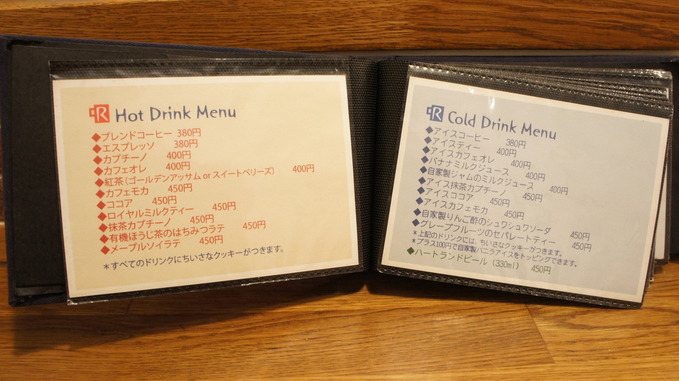 R Hot Drink Menu
◆ブレンドコーヒー 380円
◆エスプレッソ 380円
◆カプチーノ 400円
◆カフェオレ 400円
◆紅茶(ゴールデンアッサム or スイートベリーズ) 400円
◆カフェモカ 450円
◆ココア 450円
◆ロイヤルミルクティー 450円
◆抹茶カプチーノ 450円
◆有機ほうじ茶のはちみつラテ 450円
◆メープルソイラテ 450円
*すべてのドリンクにちいさなクッキーがつきます。
R Cold Drink Menu
◆アイスコーヒー 380円
◆アイスティー 400円
◆アイスカフェオレ 400円
◆バナナミルクジュース 400円
◆自家製ジャムのミルクジュース 400円
◆アイス抹茶カプチーノ 450円
◆アイスココア 450円
◆アイスカフェモカ 450円
◆自家製りんご酢のシュワシュワソーダ 450円
◆グレープフルーツのセパレートティー 450円
*上記のドリンクには、ちいさなクッキーがつきます。
*プラス100円で自家製バニラアイスをトッピングできます。
◆ハートランドビール (330ml) 450円